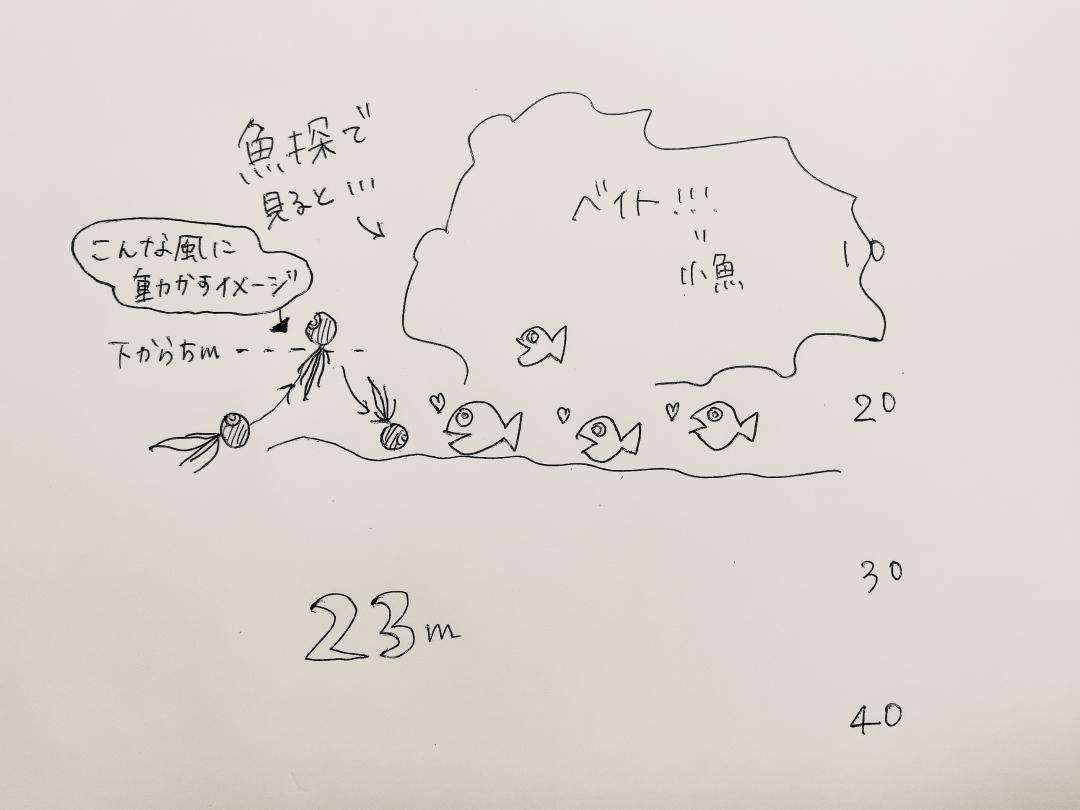 魚探で
見ると…
こんな風に
動かすイメージ
下から5m
ベイト!!!!
〃
小魚
10
20
30
40
23m